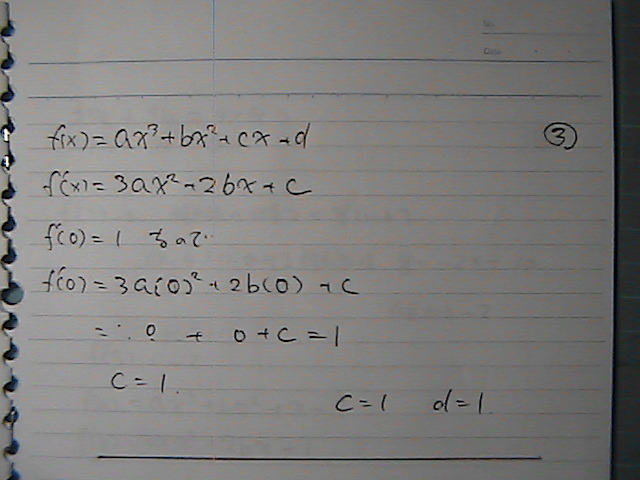 No.
Date
f(x) = ax³ + bx² + cx + d ③
f'(x) = 3ax² + 2bx + c
f'(0) = 1 なので
f'(0) = 3a(0)² + 2b(0) + c
= 0 + 0 + c = 1
c = 1.
c = 1 d = 1.